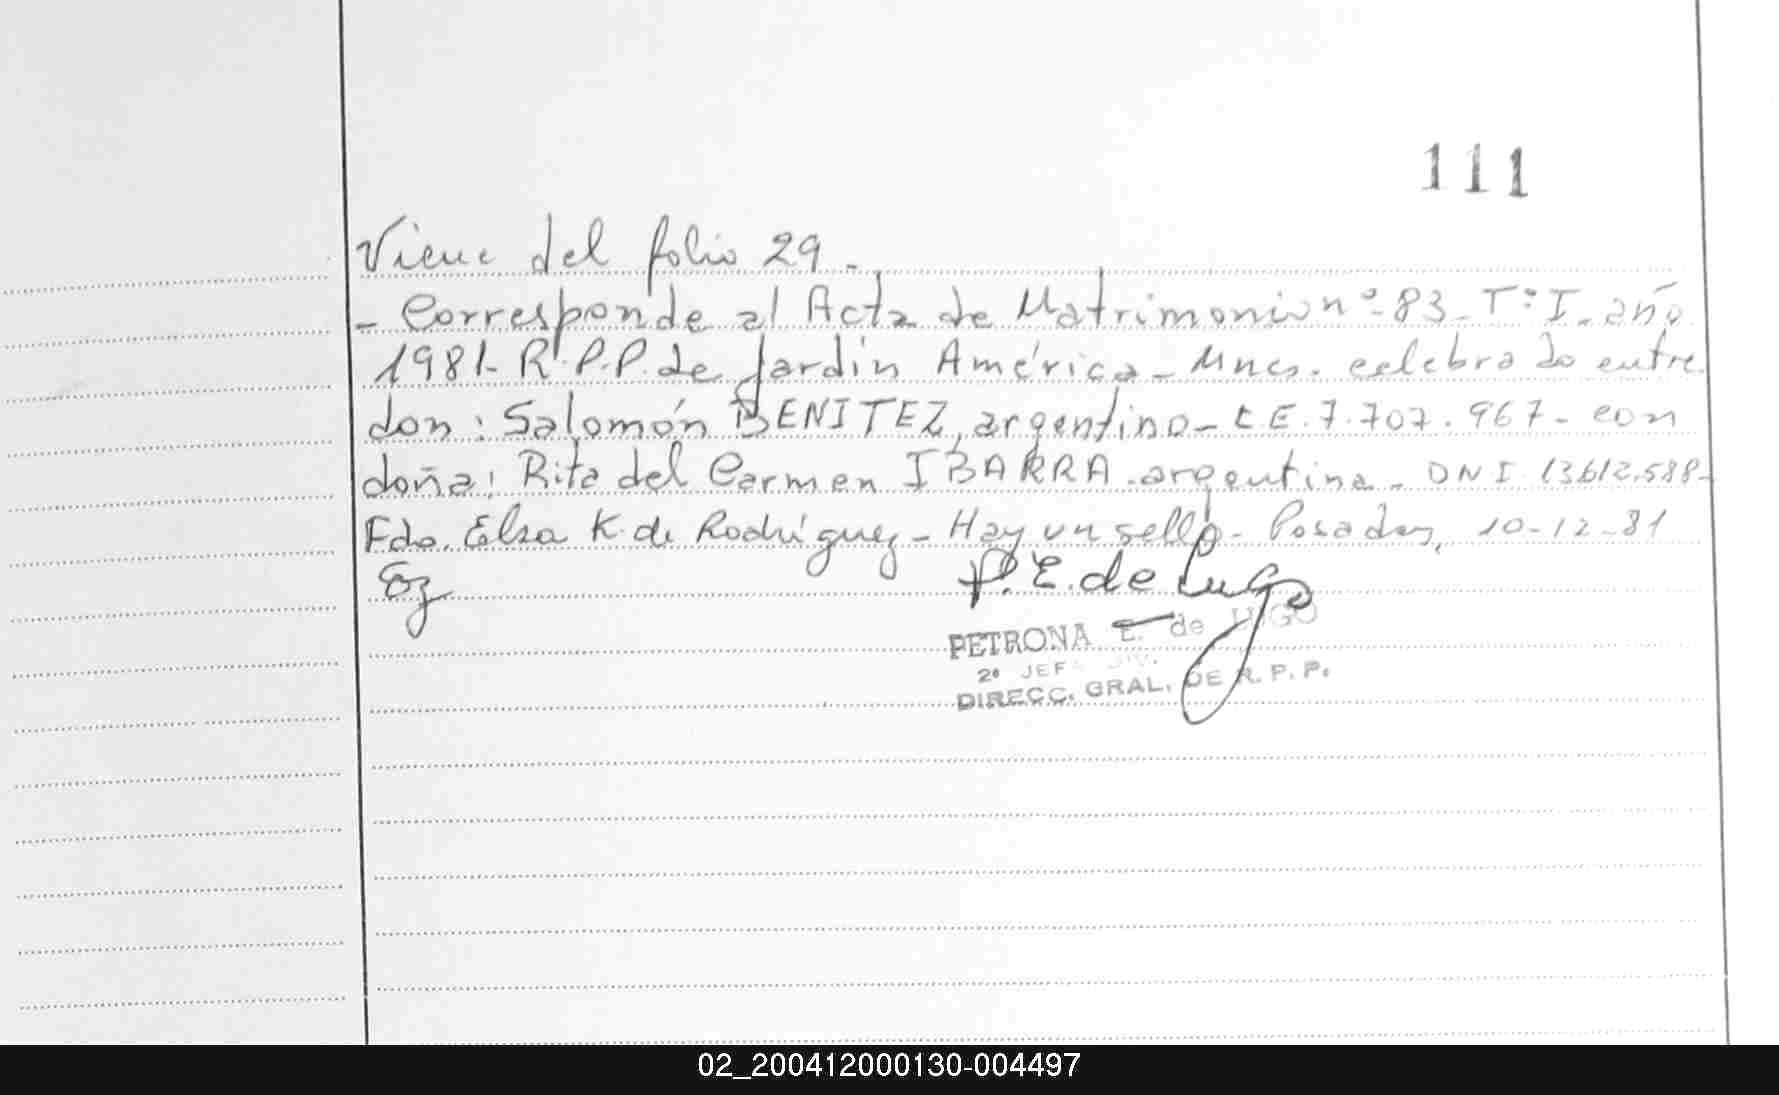 111
Viene del folio 29.-
- Corresponde al Acta de Matrimonio nº-83-Tº I. año
1981- R.P.P. de Jardín América - Mnes. celebrado entre
don: Salomón BENITEZ, argentino- L E. 7.707.967- con
doña: Rita del Carmen IBARRA. argentina. DNI 13612.588-
Fdo. Elsa K. de Rodríguez - Hay un sello- Posadas, 10-12-81
P. E. de Lugo
PETRONA E. de LUGO
2º JEFA DIV.
DIRECC. GRAL. DE R. P. P.
02_200412000130-004497